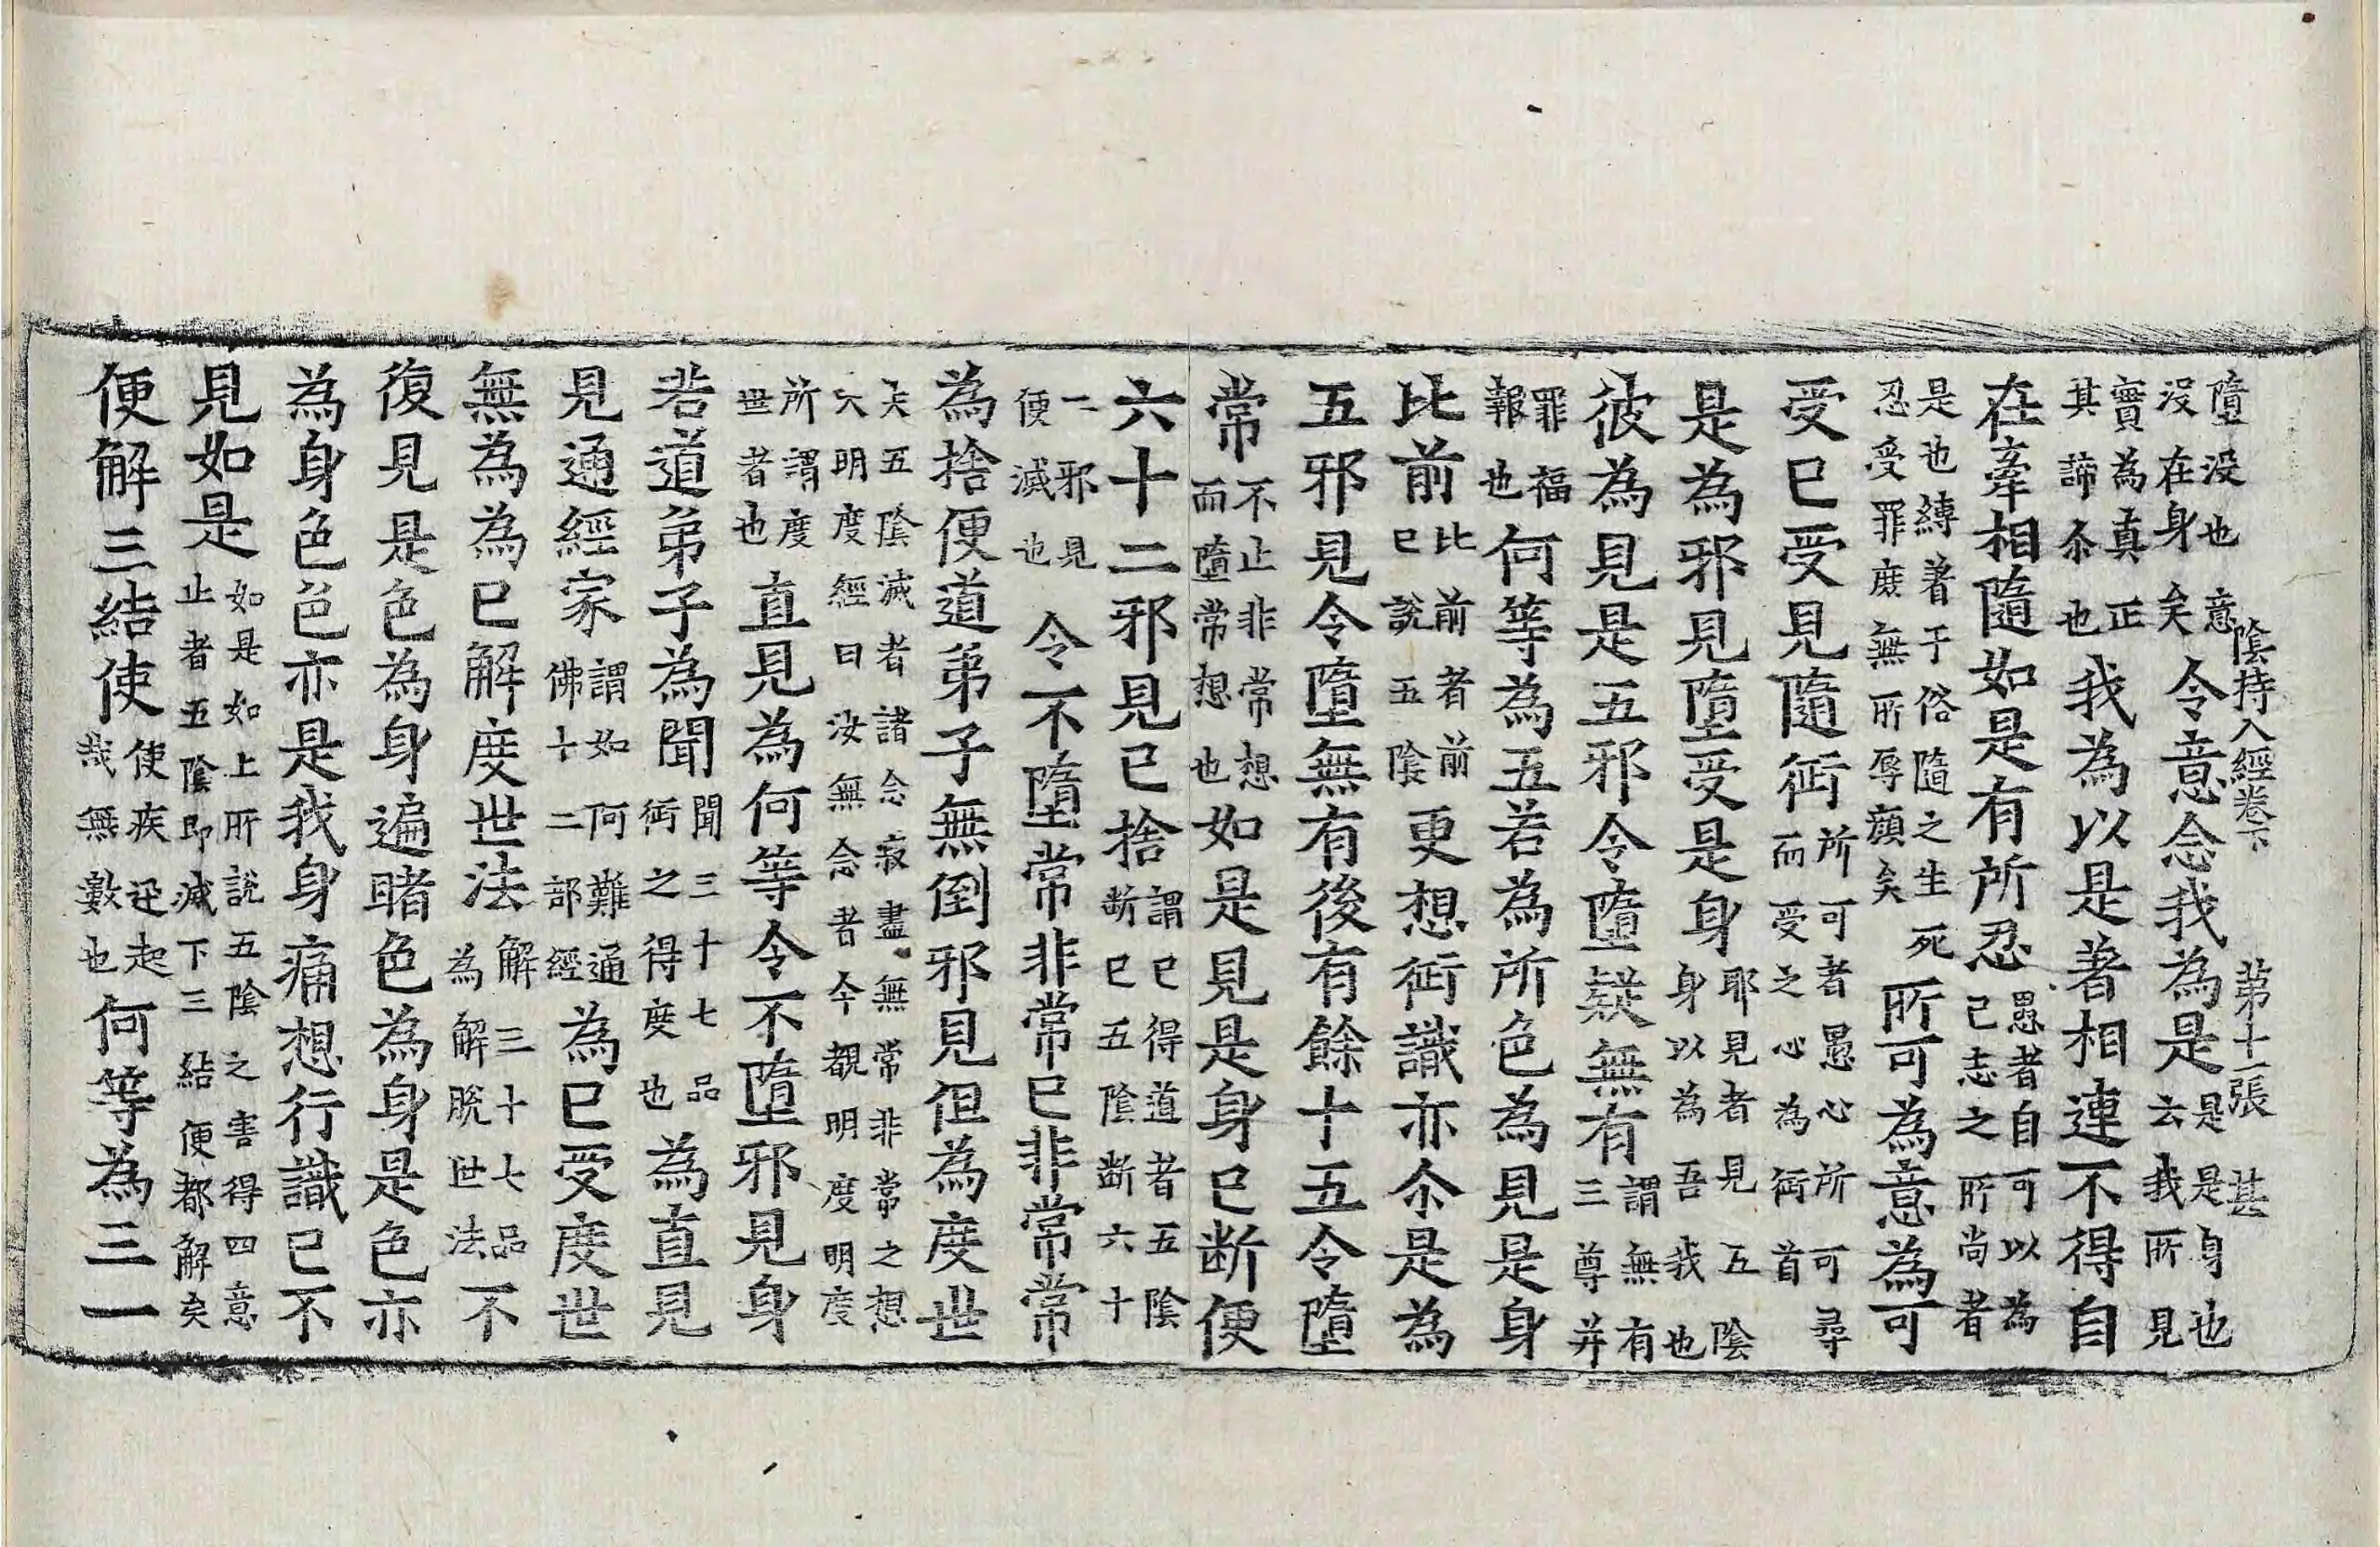 陰持入經卷下 第十一張 甚
墮没也意
没在身矣
令意念我為是
是是身也
云我所見
實為真正
其諦尒也
我為以是著相連不得自
在牽相隨如是有所忍
愚者自可以為
己志之所尚者
是也縛著于俗隨之生死
忍受罪庶無所辱顔矣
所可為意為可
受已受見隨行
所可者愚心所可尋
而受之心為行首
是為邪見墮受是身
耶見者見五陰
身以為吾我也
彼為見是五邪令墮礙無有
謂無有
三尊并
罪福
報也
何等為五若為所色為見是身
比前
比前者前
已說五陰
更想行識亦尒是為
五邪見令墮無有後有餘十五令墮
常
不止非常想
而墮常想也
如是見是身已断便
六十二邪見已捨
謂已得道者五陰
断已五陰断六十
二邪見
便滅也
令不墮常非常已非常常
為捨便道弟子無倒邪見但為度世
夫五陰滅者諸念寂盡無常非常之想
大明度經曰汝無念者今覩明度明度
所謂度
世者也
直見為何等令不墮邪見身
若道弟子為聞
聞三十七品
行之得度也
為直見
見通經家
謂如何難通
佛十二部經
為已受度世
無為為已解度世法
解三十七品
為解脫世法
不
復見是色為身遍睹色為身是色亦
為身色色亦是我身痛想行識已不
見如是
如是如上所說五陰之害得四意
止者五陰即滅下三結便都解矣
便解三結使
使疾迅起
哉無數也
何等為三一